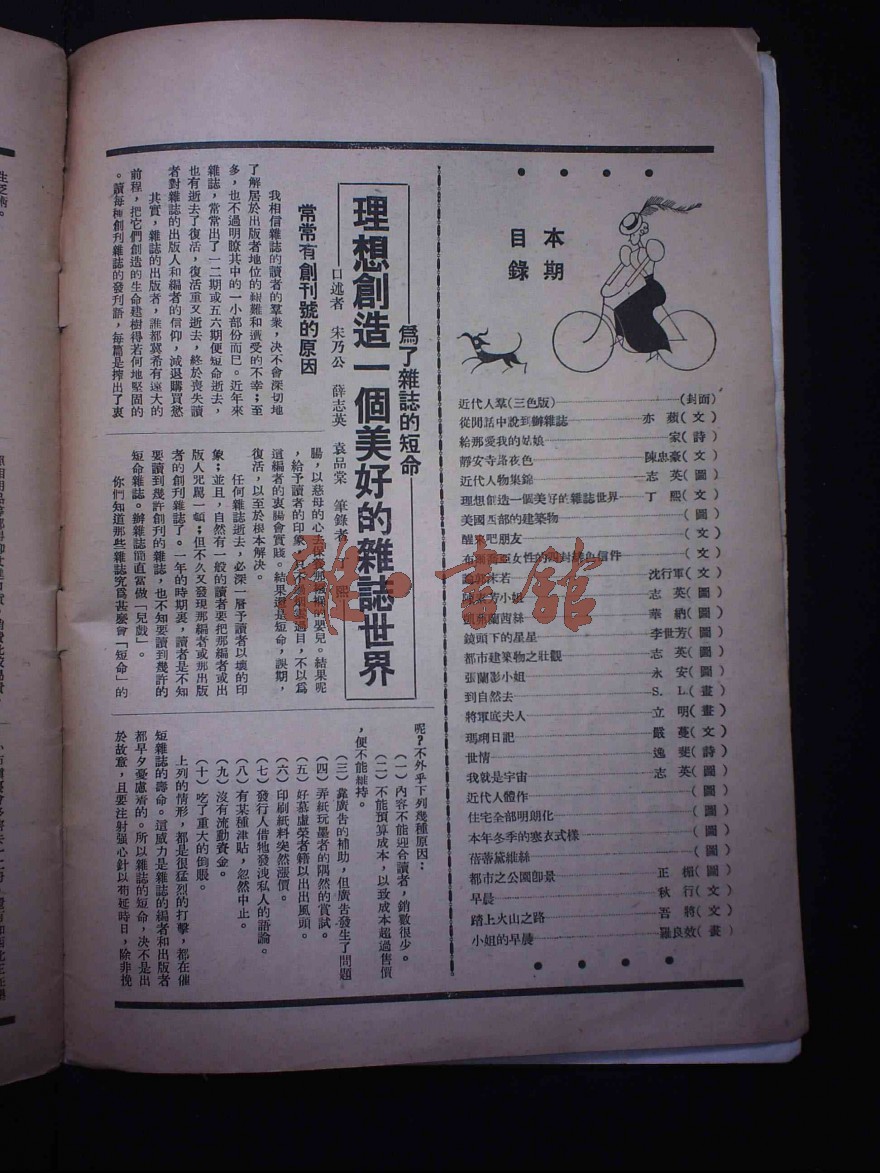 本期
目錄
近代人羣(三色版)——(封面)
從閒話中說到辦雜誌——亦蘋(文)
給那愛我的姑娘——家(詩)
靜安寺路夜色——陳忠豪(文)
近代人物集錦——志英(圖)
理想創造一個美好的雜誌世界——丁熙(文)
美國西部的建築物——(圖)
醒來吧朋友——(文)
女性的四封緋色信件——(文)
沫若——沈行軍(文)
小姐——志英(圖)
蘭茜絲——華納(圖)
鏡頭下的星星——李世芳(圖)
都市建築物之壯觀——志英(圖)
張蘭影小姐——永安(圖)
到自然去——S. L(畫)
將軍底夫人——立明(畫)
瑪琍日記——嚴蔓(文)
世情——逸斐(詩)
我就是宇宙——志英(圖)
近代人體作——(圖)
住宅全部明朗化——(圖)
本年冬季的寒衣式樣——(圖)
蓓蒂黛維絲——(圖)
都市之公園卽景——正楣(圖)
早晨——秋行(文)
踏上火山之路——吾將(文)
小姐的早晨——羅良效(畫)
爲了雜誌的短命
理想創造一個美好的雜誌世界
口述者 宋乃公 薛志英 袁品棠 筆錄者 丁熙
常常有創刊號的原因
我相信雜誌的讀者的羣衆,决不會深切地
了解居於出版者地位的艱難和遭受的不幸;至
多,也不過明瞭其中的一小部份而已。近年來
雜誌,常常出了一二期或五六期便短命逝去,
也有逝去了復活,復活重又逝去,終於喪失讀
者對雜誌的出版人和編者的信仰,減退購買慾
其實,雜誌的出版者,誰都冀希有遠大的
前程,把它們創造的生命建樹得若何地堅固的
。讀每種創刊雜誌的發刊辭,每篇是搾出了衷
腸,以慈母的心去保養那襁褓的嬰兒。結果呢
,給予讀者的印象,只不過烟雲過目,不以爲
這編者的衷腸會實踐。結果還是短命,誤期,
復活,以至於根本解决。
任何雜誌逝去,必深一層予讀者以壞的印
象;並且,自然有一般的讀者要把那編者或出
版人咒罵一頓;但不久又發現那編者或那出版
者的創刊雜誌了。一年的時期裏,讀者是不知
要讀到幾許創刊的雜誌,也不知要讀到幾許的
短命雜誌。辦雜誌簡直當做「兒戲」。
你們知道那些雜誌究爲甚麽會「短命」的
呢?不外乎下列幾種原因:
(一)內容不能迎合讀者,銷數很少。
(二)不能預算成本,以致成本超過售價
,便不能維持。
(三)靠廣告的補助,但廣告發生了問題
(四)弄紙玩墨者的隅然的嘗試。
(五)好慕虛榮者籍以出出風頭。
(六)印刷紙料突然漲價。
(七)發行人借牠發洩私人的語論。
(八)有某種津貼,忽然中止。
(九)沒有流動資金。
(十)吃了重大的倒賬。
上列的情形,都是很猛烈的打擊,都在催
短雜誌的壽命。這威力是雜誌的編者和出版者
都早夕憂慮着的。所以雜誌的短命,决不是出
於故意,且要注射强心針以苟延時日,除非挽